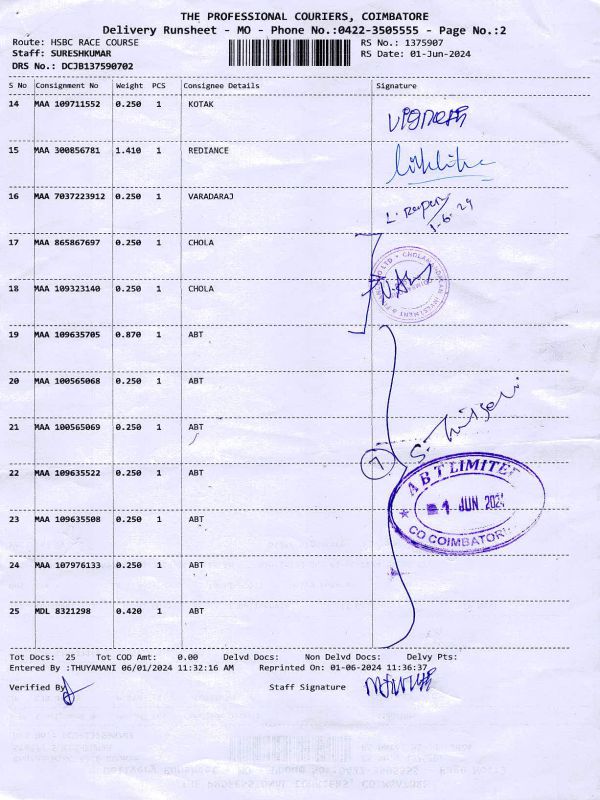 THE PROFESSIONAL COURIERS, COIMBATORE
Delivery Runsheet - MO - Phone No.:0422-3505555 - Page No.:2
Route: HSBC RACE COURSE RS No.: 1375907
Staff: SURESHKUMAR RS Date: 01-Jun-2024
DRS No.: DCJB137590702
S No Consignment No Weight PCS Consignee Details Signature
14 MAA 109711552 0.250 1 KOTAK
15 MAA 300856781 1.410 1 REDIANCE
16 MAA 7037223912 0.250 1 VARADARAJ
1-6-24
17 MAA 865867697 0.250 1 CHOLA
18 MAA 109323140 0.250 1 CHOLA
19 MAA 109635705 0.870 1 ABT
20 MAA 100565068 0.250 1 ABT
21 MAA 100565069 0.250 1 ABT
7
22 MAA 109635522 0.250 1 ABT
ABT LIMITED
1 JUN 2024
CO COIMBATORE
23 MAA 109635508 0.250 1 ABT
24 MAA 107976133 0.250 1 ABT
25 MDL 8321298 0.420 1 ABT
Tot Docs: 25 Tot COD Amt: 0.00 Delvd Docs: Non Delvd Docs: Delvy Pts:
Entered By :THUYAMANI 06/01/2024 11:32:16 AM Reprinted On: 01-06-2024 11:36:37
Verified By Staff Signature